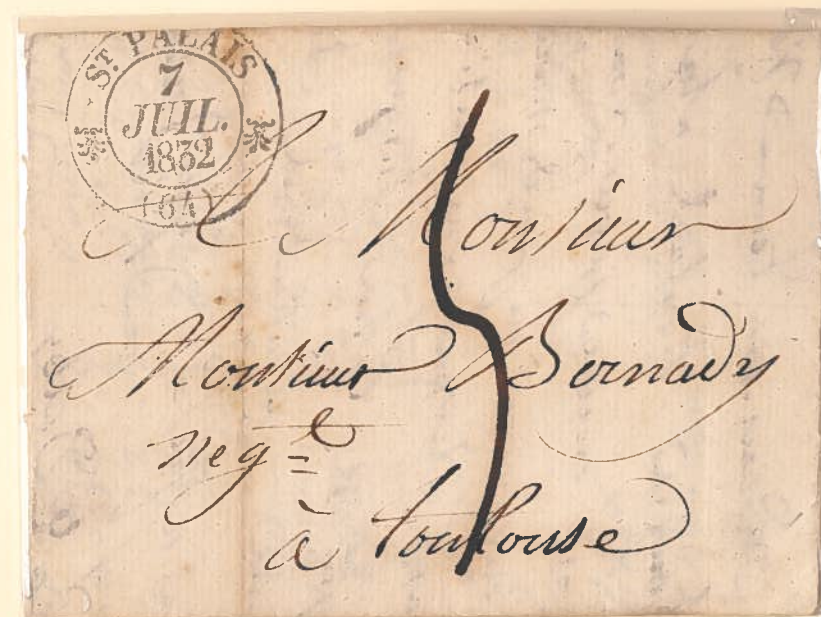 ST. PALAIS
7
JUIL.
1832
(64)
A Monsieur
Monsieur Bernady
neg.t
à toulouse
5